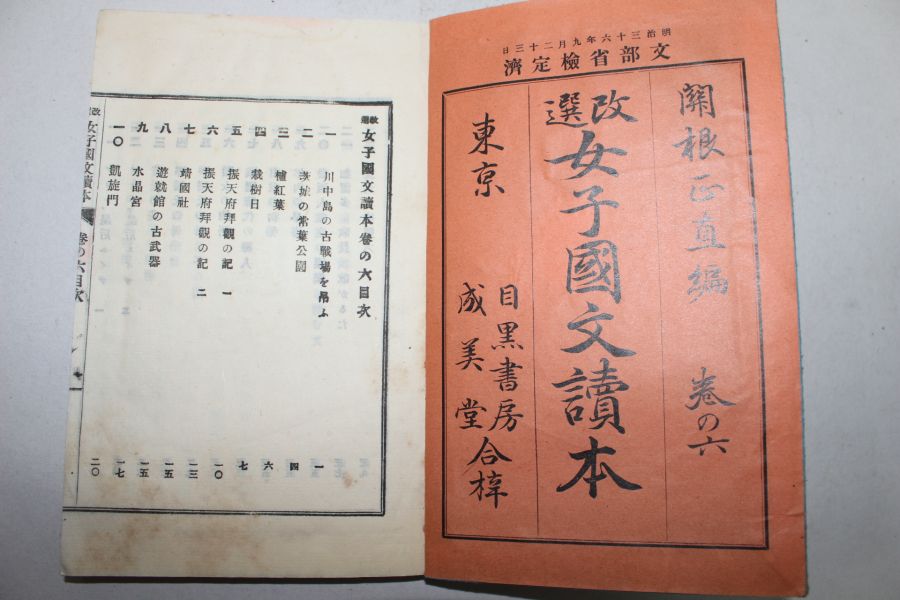 明治三十六年九月二十三日
文部省檢定濟
關根正直編 卷の六
改選 女子國文讀本
東京 目黒書房 成美堂 合梓
改選 女子國文讀本卷の六目次
一 川中島の古戰場を吊ふ 一
二 茨城の常葉公園 四
三 植紅葉 六
四 栽樹日 七
五 振天府拜觀の記 一 一〇
六 振天府拜觀の記 二 一三
七 靖國社 一五
八 遊就館の古武器 一五
九 水晶宮 一七
一〇 凱旋門 二〇
改選 女子國文讀本 卷の六目次